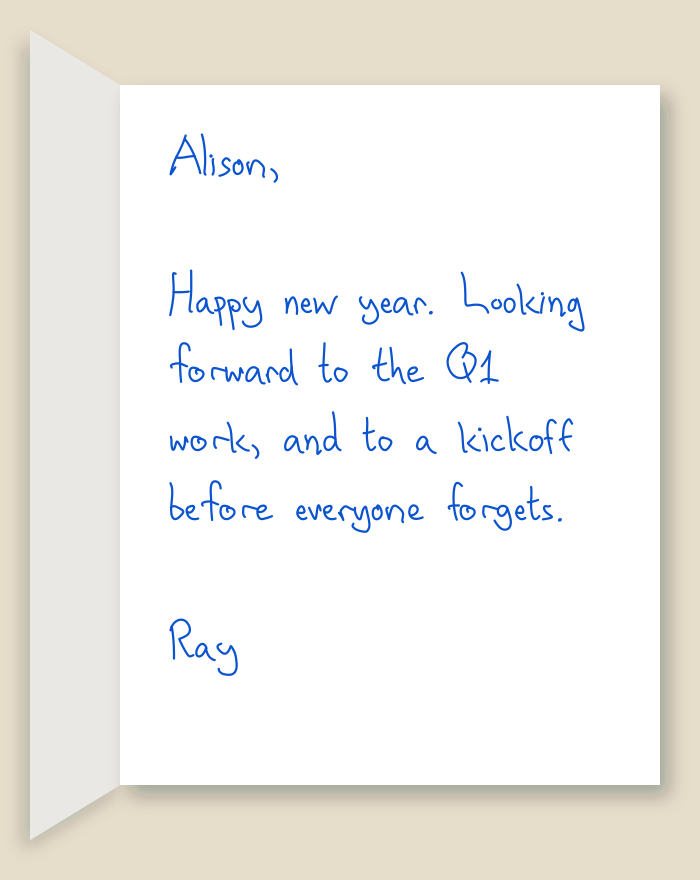 Alison,
Happy new year. Looking
forward to the Q1
work, and to a kickoff
before everyone forgets.
Ray